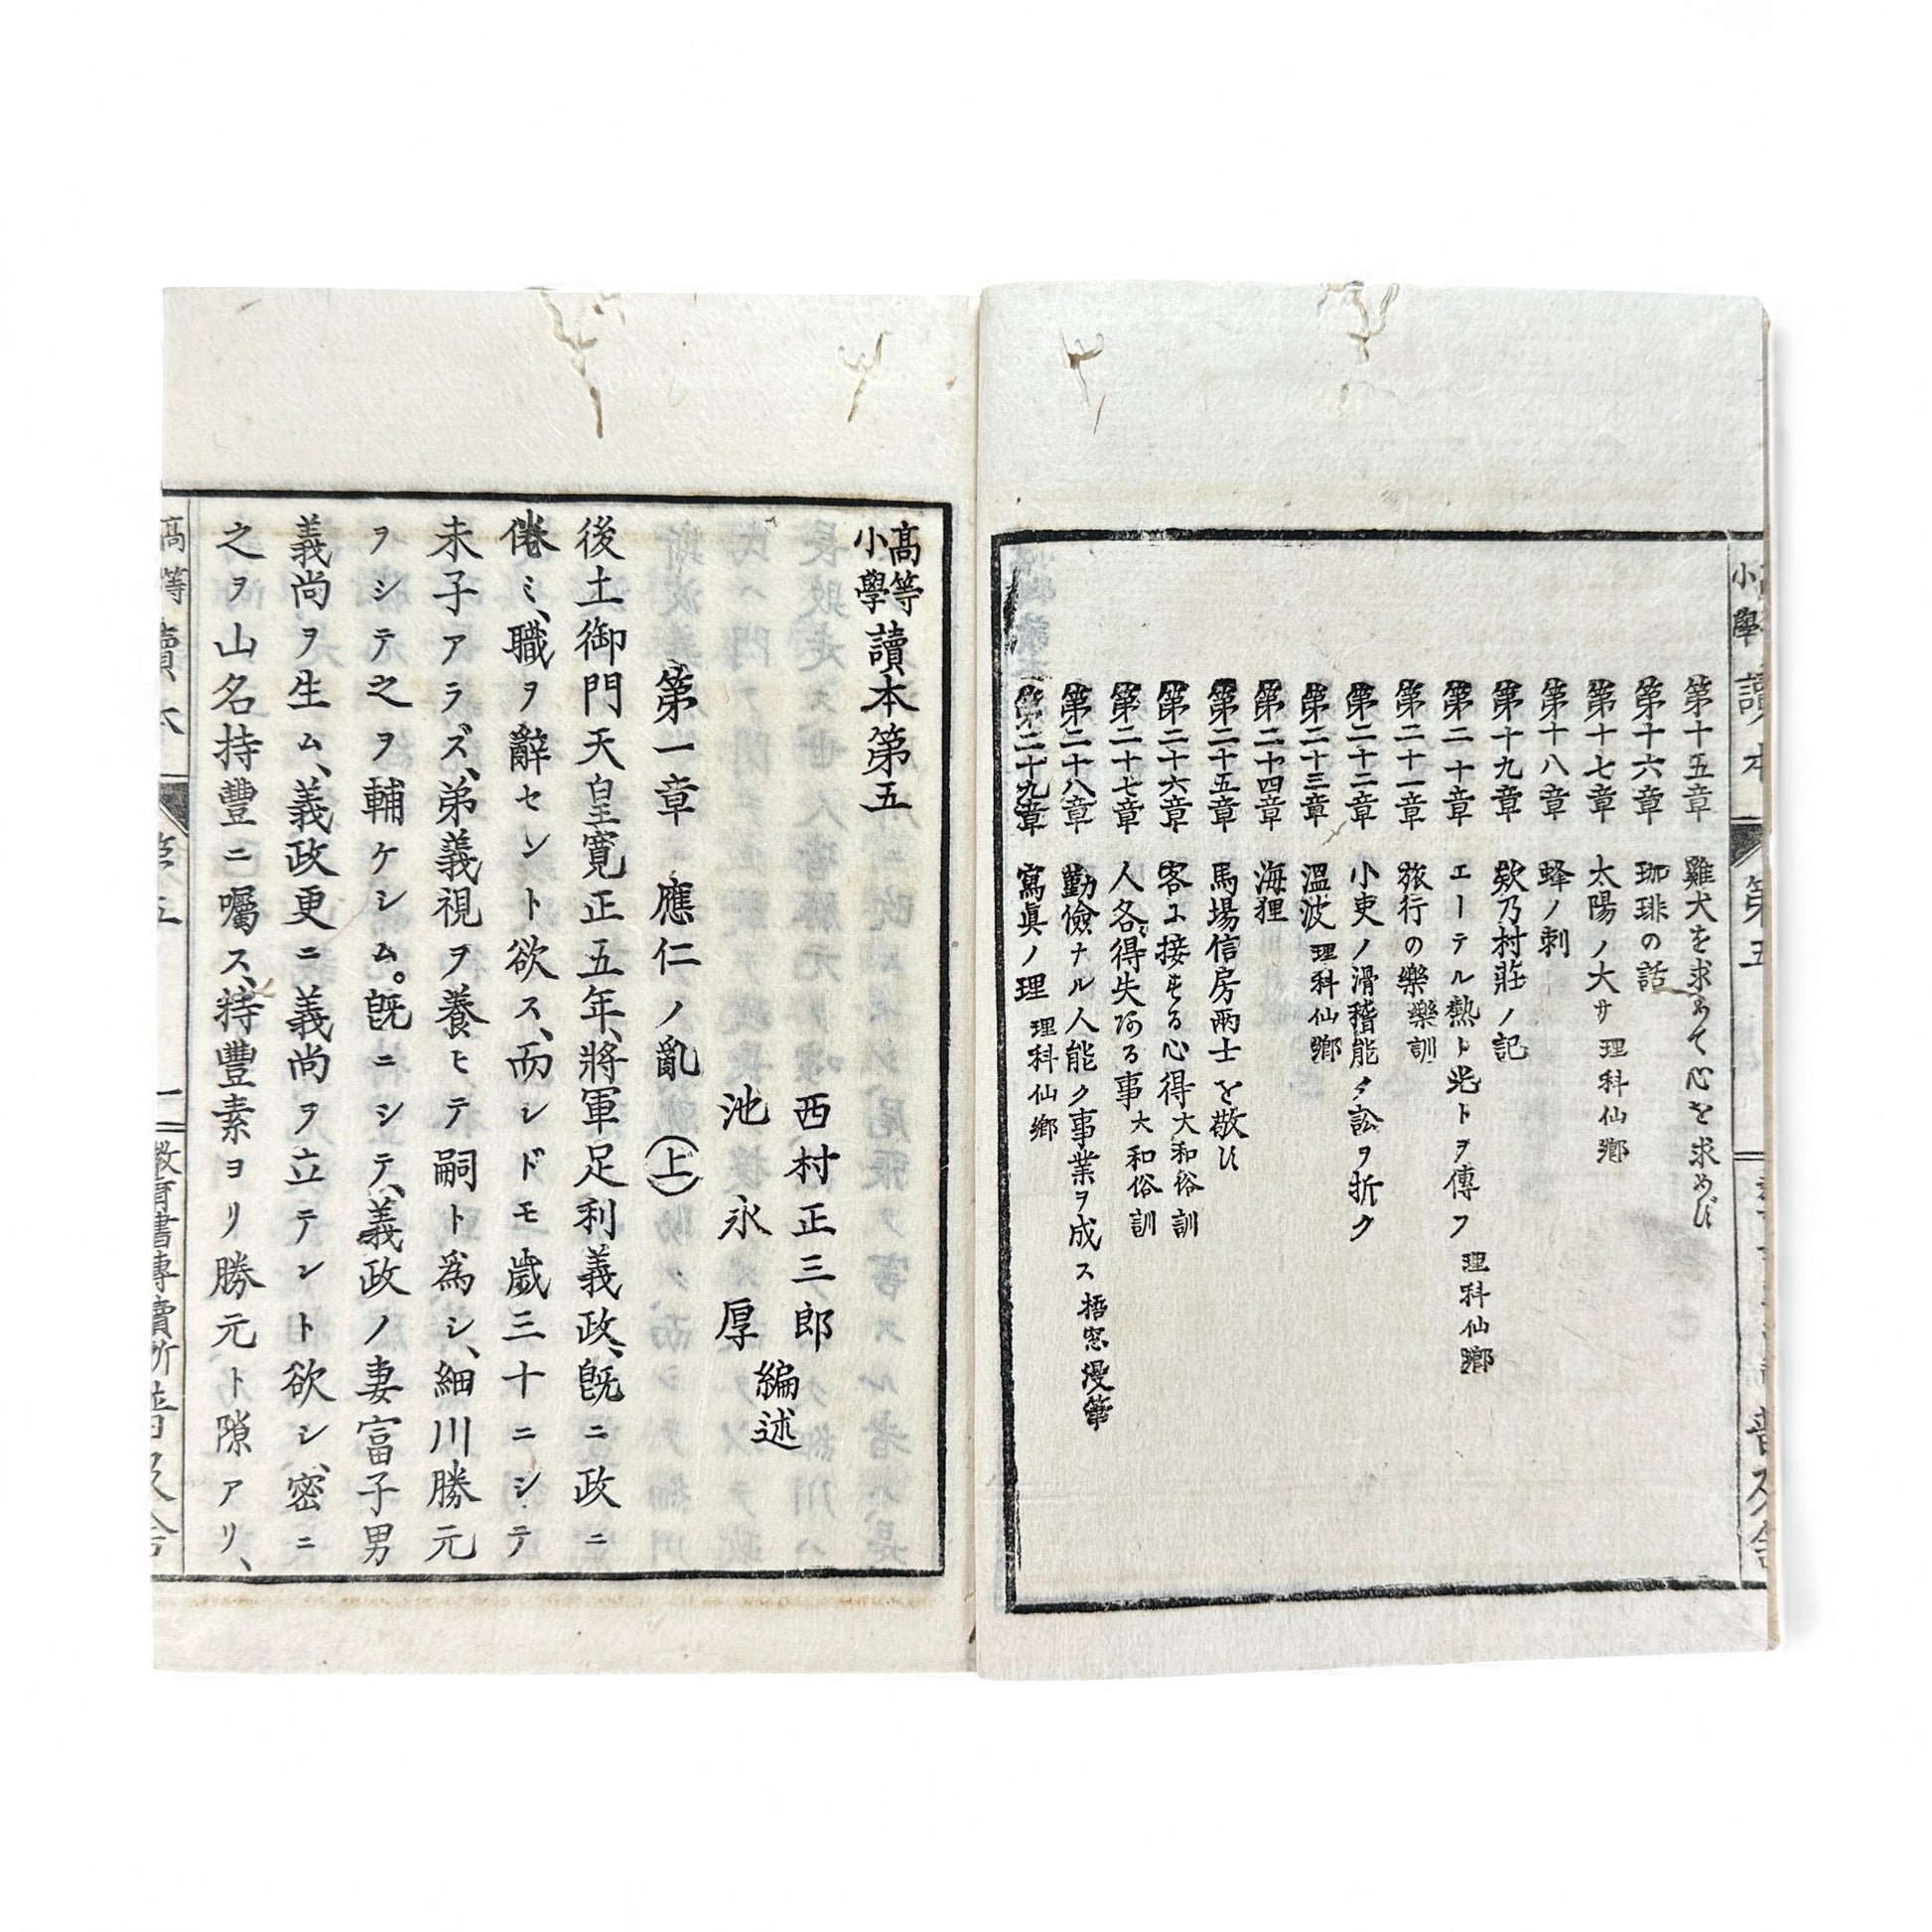 第十五章 雞犬を求めて心を求めず
第十六章 珈琲の話
第十七章 太陽ノ大サ 理科仙鄉
第十八章 蜂ノ刺
第十九章 欸乃村莊ノ記
第二十章 エーテル熱ト光トヲ傳フ 理科仙鄉
第二十一章 旅行の樂 樂訓
第二十二章 小吏ノ滑稽能ク訟ヲ折ク
第二十三章 溫波 理科仙鄉
第二十四章 海狸
第二十五章 馬場信房兩士を敬ひ
第二十六章 客に接する心得 大和俗訓
第二十七章 人各得失ある事 大和俗訓
第二十八章 勤儉ナル人能ク事業ヲ成ス 梧窓漫筆
第二十九章 寫眞ノ理 理科仙鄉
高等小學讀本第五
西村正三郎
池永厚
編述
第一章 應仁ノ亂 (上)
後土御門天皇寬正五年、將軍足利義政、旣ニ政ニ
倦ミ、職ヲ辭セント欲ス、而シドモ歲三十ニシテ
未子アラズ、弟義視ヲ養ヒテ嗣ト爲シ、細川勝元
ヲシテ之ヲ輔ケシム。旣ニシテ、義政ノ妻富子男
義尚ヲ生ム、義政更ニ義尚ヲ立テント欲シ、密ニ
之ヲ山名持豐ニ囑ス、持豐素ヨリ勝元ト隙アリ、